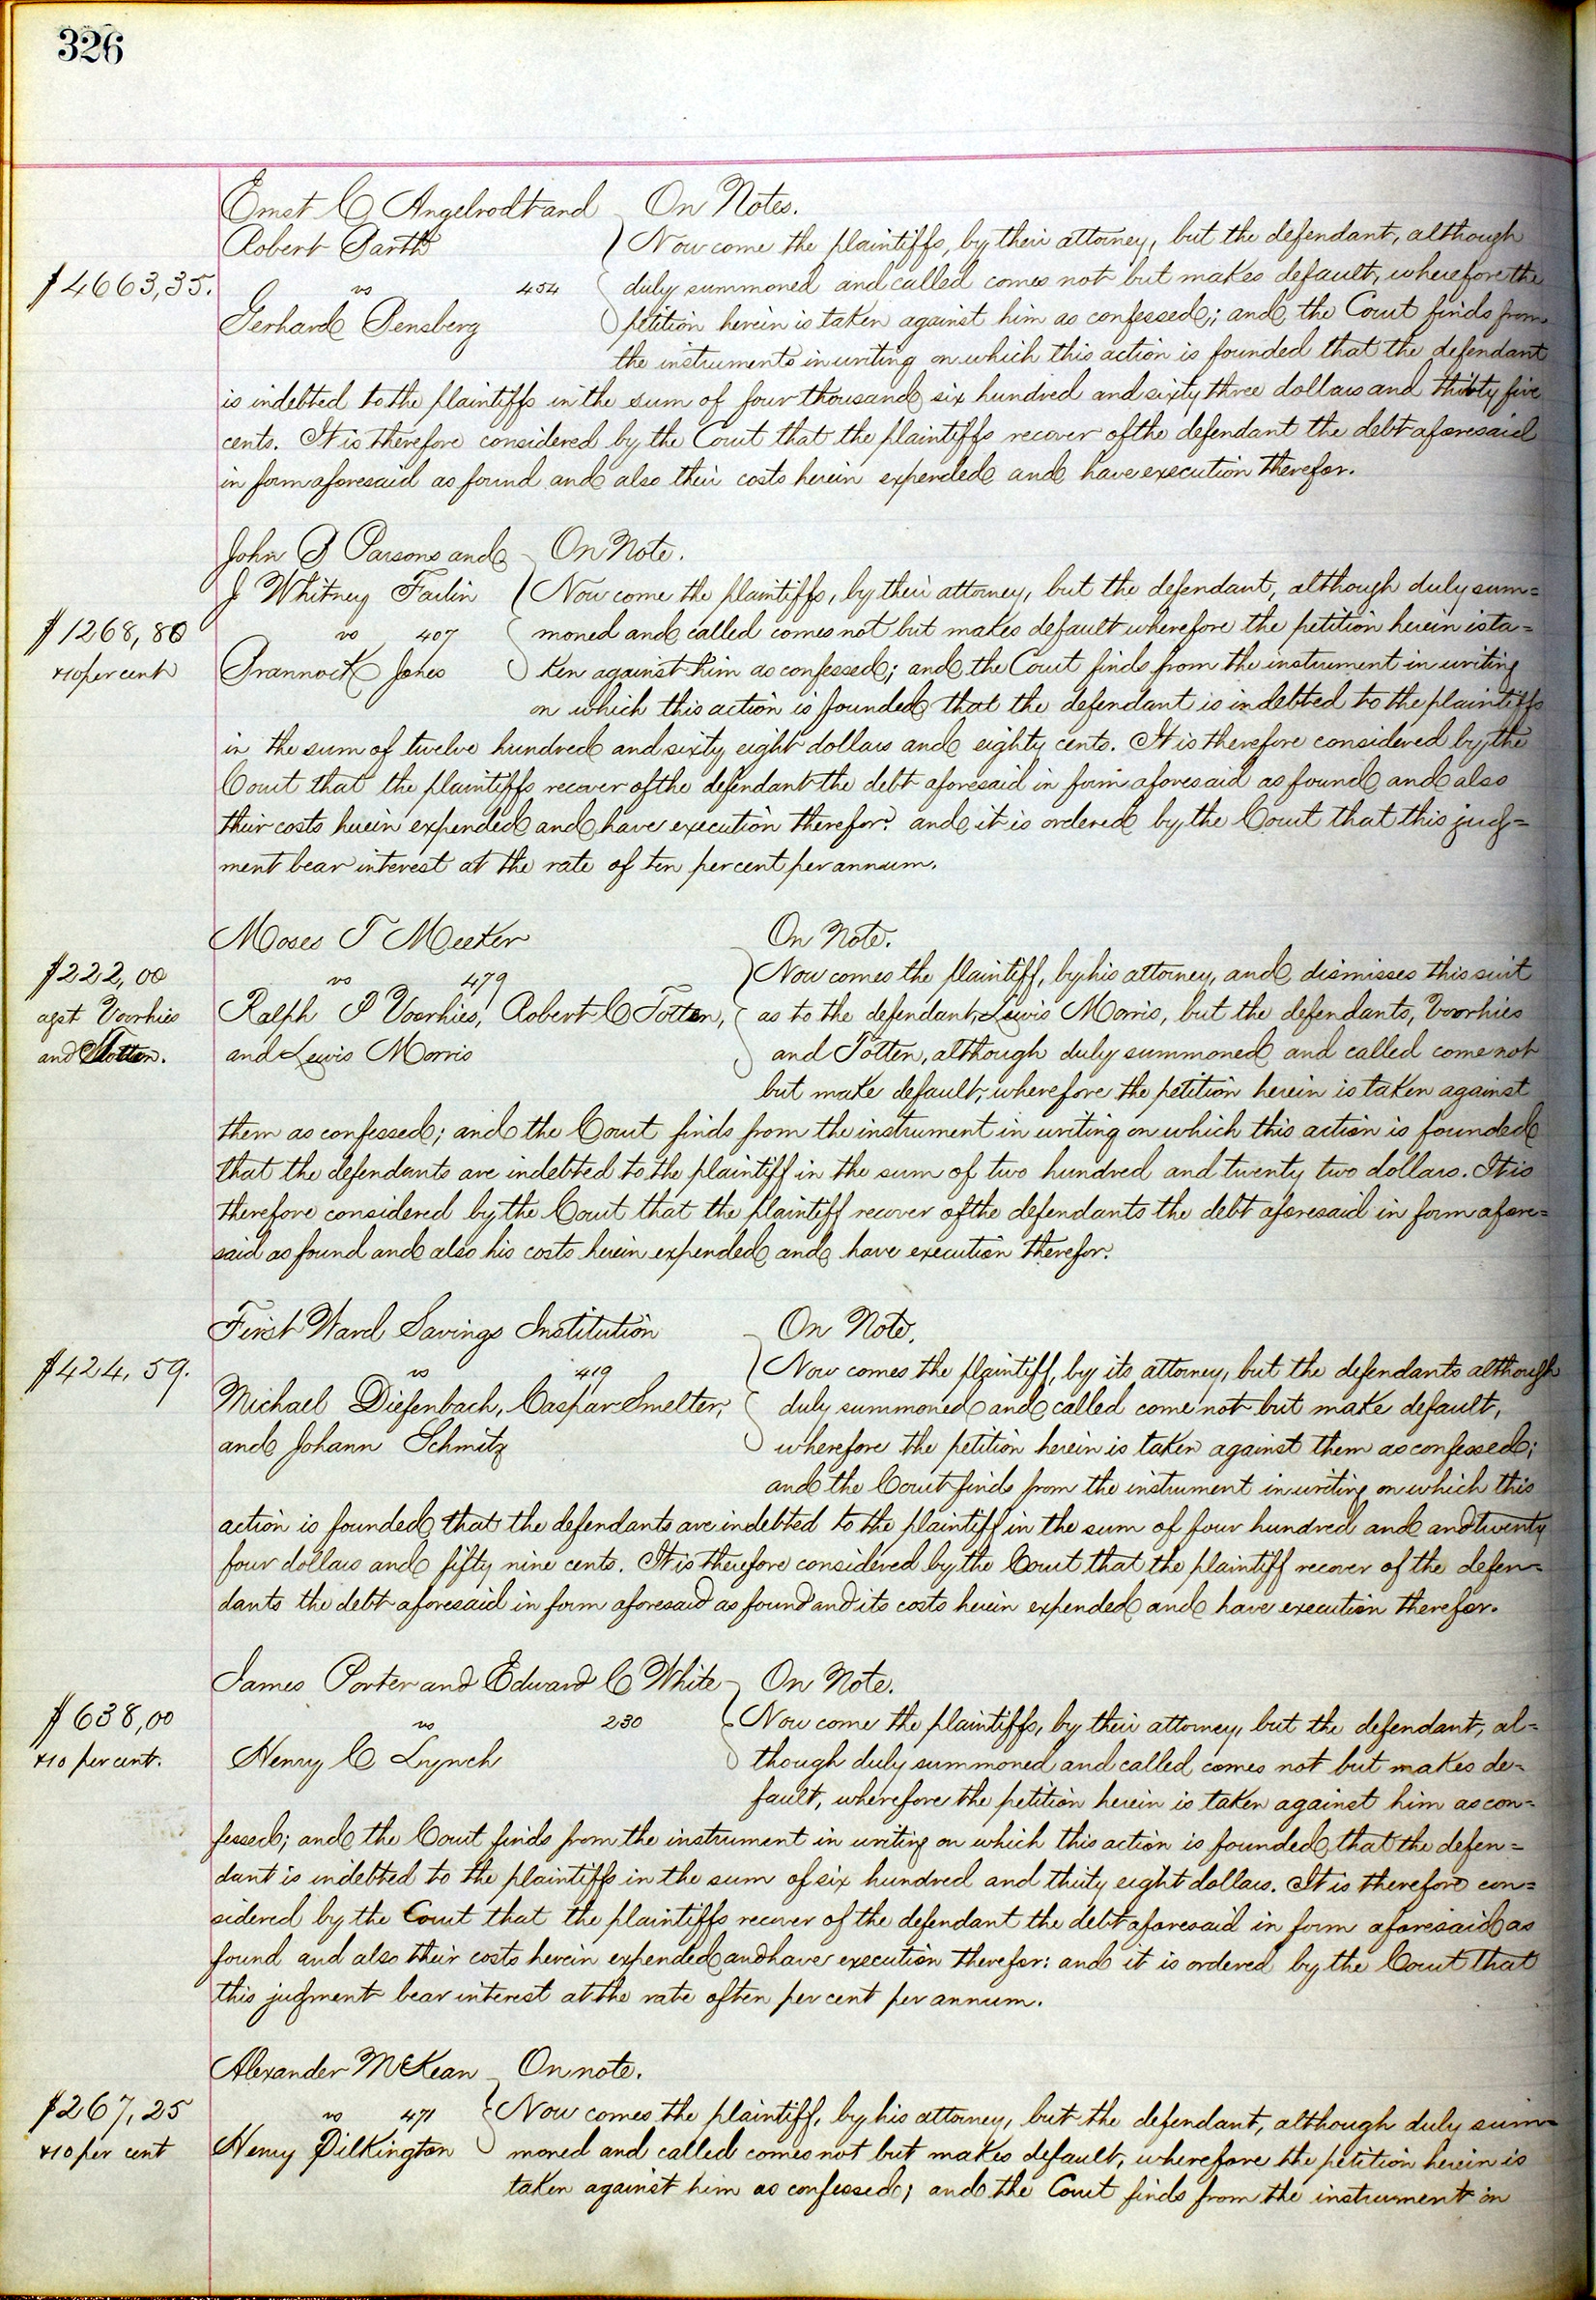 326
Ernst C Angelrodt and On Notes.
Robert Barth Now come the plaintiffs, by their attorney, but the defendant, although
$4663,35. vs 454 duly summoned and called comes not but makes default, wherefore the
Gerhard Bensberg petition herein is taken against him as confessed; and the Court finds from
the instruments in writing on which this action is founded that the defendant
is indebted to the plaintiffs in the sum of four thousand six hundred and sixty three dollars and thirty five
cents. It is therefore considered by the Court that the plaintiffs recover of the defendant the debt aforesaid
in form aforesaid as found and also their costs herein expended and have execution therefor.
John B Parsons and On Note.
J Whitney Farlin Now come the plaintiffs, by their attorney, but the defendant, although duly sum=
$1268,80 vs 407 moned and called comes not but makes default wherefore the petition herein is ta=
x10 per cent Brannock Jones ken against him as confessed; and the Court finds from the instrument in writing
on which this action is founded that the defendant is indebted to the plaintiffs
in the sum of twelve hundred and sixty eight dollars and eighty cents. It is therefore considered by the
Court that the plaintiffs recover of the defendant the debt aforesaid in form aforesaid as found and also
their costs herein expended and have execution therefor: and it is ordered by the Court that this judg=
ment bear interest at the rate of ten per cent per annum.
Moses T Meeker On Note.
$222,00 vs 479 Now comes the plaintiff, by his attorney, and dismisses this suit
agst Voorhies Ralph P Voorhies, Robert C Totten, as to the defendant, Lewis Morris, but the defendants, Voorhies
and Totten. and Lewis Morris and Totten, although duly summoned and called come not
but make default, wherefore the petition herein is taken against
them as confessed; and the Court finds from the instrument in writing on which this action is founded
that the defendants are indebted to the plaintiff in the sum of two hundred and twenty two dollars. It is
therefore considered by the Court that the plaintiff recover of the defendants the debt aforesaid in form afore=
said as found and also his costs herein expended and have execution therefor.
First Ward Savings Institution On Note.
$424,59. vs 419 Now comes the plaintiff, by its attorney, but the defendants although
Michael Diefenbach, Caspar Smelter, duly summoned and called come not but make default,
and Johann Schmitz wherefore the petition herein is taken against them as confessed;
and the Court finds from the instrument in writing on which this
action is founded, that the defendants are indebted to the plaintiff in the sum of four hundred and and twenty
four dollars and fifty nine cents. It is therefore considered by the Court that the plaintiff recover of the defen=
dants the debt aforesaid in form aforesaid as found and its costs herein expended and have execution therefor.
James Porter and Edward C White On Note.
$638,00 vs 230 Now come the plaintiffs, by their attorney, but the defendant, al=
x10 per cent. Henry C Lynch though duly summoned and called comes not but makes de=
fault, wherefore the petition herein is taken against him as con=
fessed; and the Court finds from the instrument in writing on which this action is founded, that the defen=
dant is indebted to the plaintiffs in the sum of six hundred and thirty eight dollars. It is therefore con=
sidered by the Court that the plaintiffs recover of the defendant the debt aforesaid in form aforesaid as
found and also their costs herein expended and have execution therefor: and it is ordered by the Court that
this judgment bear interest at the rate of ten per cent per annum.
Alexander McKean On note.
$267,25 vs 471 Now comes the plaintiff, by his attorney, but the defendant, although duly sum=
x10 per cent Henry Pilkington moned and called comes not but makes default, wherefore the petition herein is
taken against him as confessed; and the Court finds from the instrument in